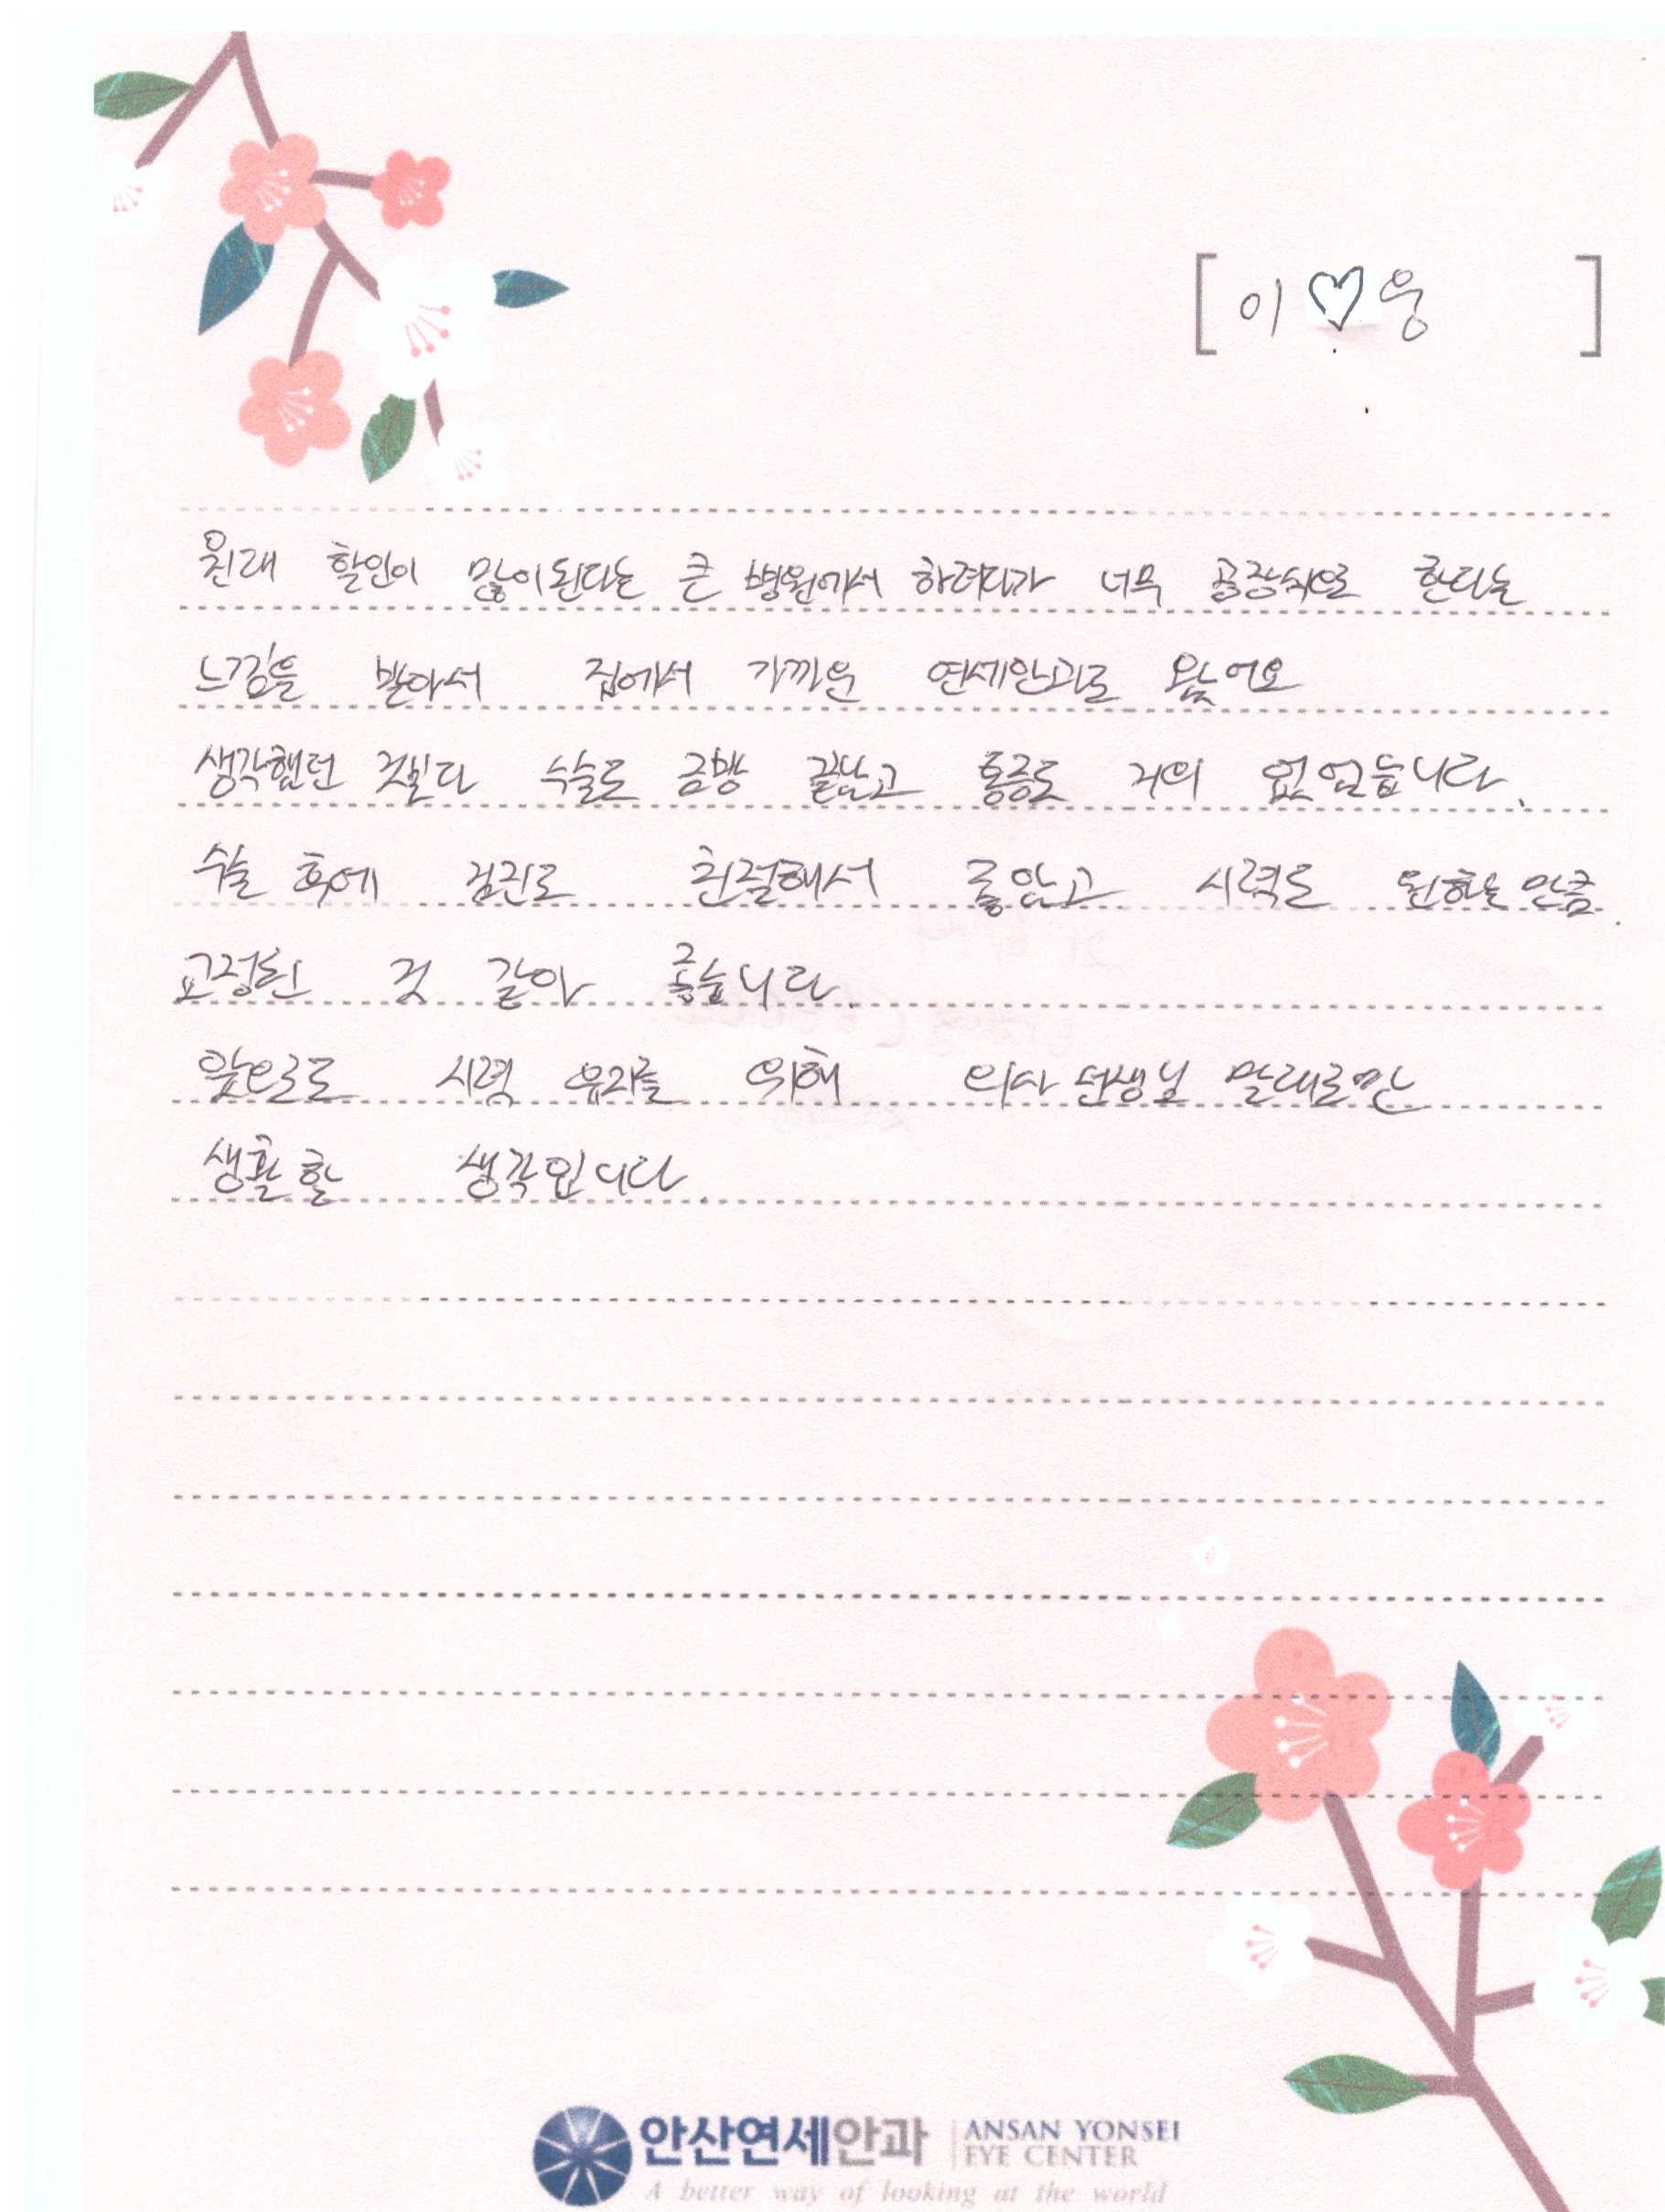 [이♡웅]
원래 할인이 많이된다는 큰 병원에서 하려다가 너무 공장식으로 한다는
느낌을 받아서 집에서 가까운 연세안과로 왔어요
생각했던 것보다 수술도 금방 끝났고 통증도 거의 없었습니다.
수술 후에 검진도 친절해서 좋았고 시력도 원하는 만큼
교정된 것 같아 좋습니다.
앞으로도 시력 유지를 위해 의사 선생님 말대로만
생활할 생각입니다.
안산연세안과 ANSAN YONSEI
EYE CENTER
A better way of looking at the world